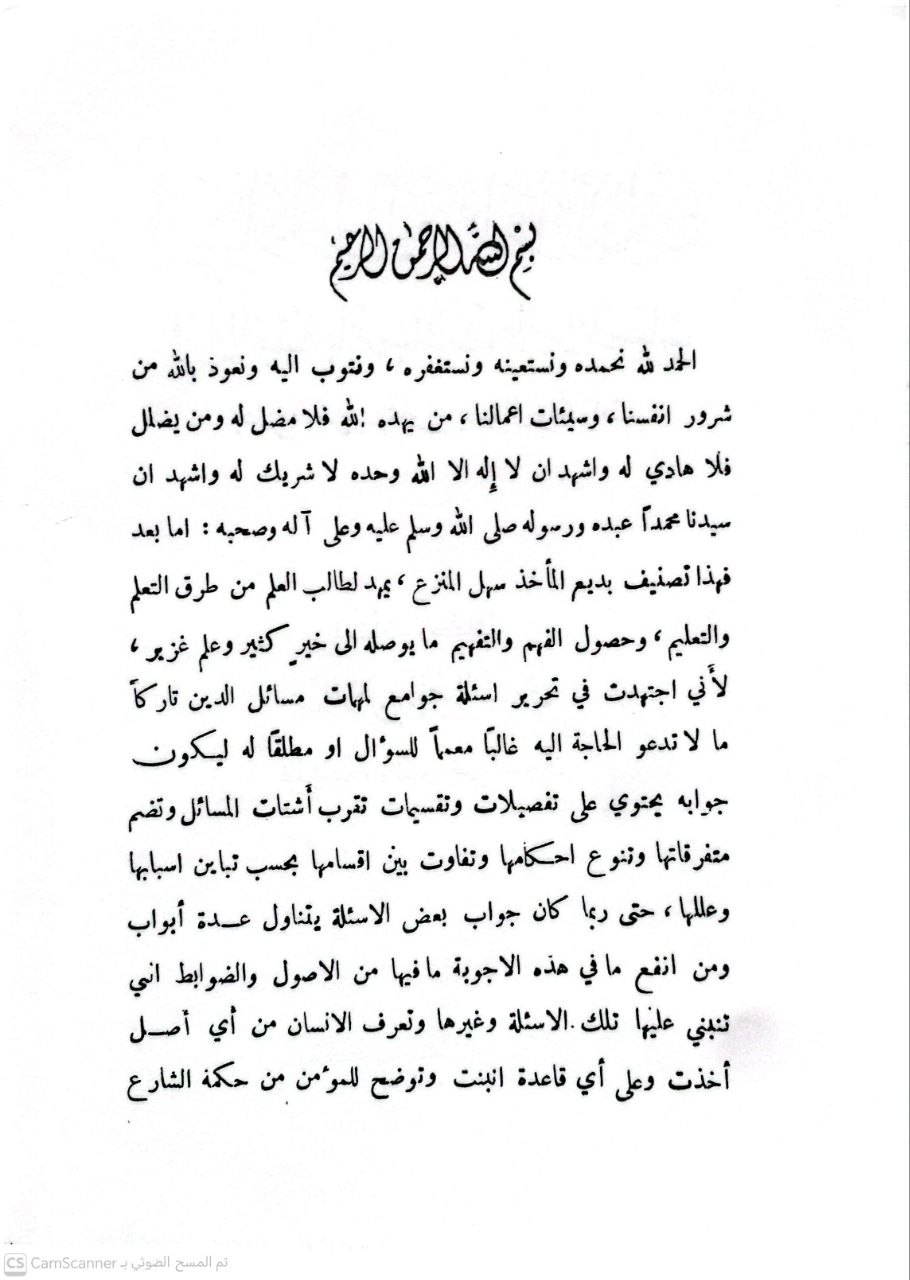 بسم الله الرحمن الرحيم
الحمد لله نحمده ونستعينه ونستغفره ، ونتوب اليه ونعوذ بالله من
شرور انفسنا ، وسيئات اعمالنا ، من يهده الله فلا مضل له ومن يضلل
فلا هادي له واشهد ان لا إله الا الله وحده لا شريك له واشهد ان
سيدنا محمداً عبده ورسوله صلى الله وسلم عليه وعلى آله وصحبه : اما بعد
فهذا تصنيف بديع المأخذ سهل المنزع ، يمهد لطالب العلم من طرق التعلم
والتعليم ، وحصول الفهم والتفهيم ما يوصله الى خيرٍ كثير وعلم غزير ،
لأَني اجتهدت في تحرير اسئلة جوامع لمهات مسائل الدين تاركاً
ما لا تدعو الحاجة اليه غالبًا معمماً للسؤال او مطلقًا له ليكون
جوابه يحتوي على تفصيلات وتقسيمات تقرب أَشتات المسائل وتضم
متفرقاتها وتنوع احكامها وتفاوت بين اقسامها بحسب تباين اسبابها
وعللها ، حتى ربما كان جواب بعض الاسئلة يتناول عدة أبواب
ومن انفع ما في هذه الاجوبة ما فيها من الاصول والضوابط اني
تنبني عليها تلك الاسئلة وغيرها وتعرف الانسان من أي أصل
أخذت وعلى أي قاعدة انبنت وتوضح للمؤمن من حكمة الشارع
CS CamScanner تم المسح الضوئي بـ